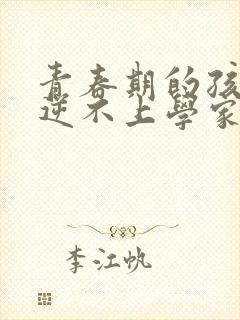 青春期的孩
逆不上學家
李江帆